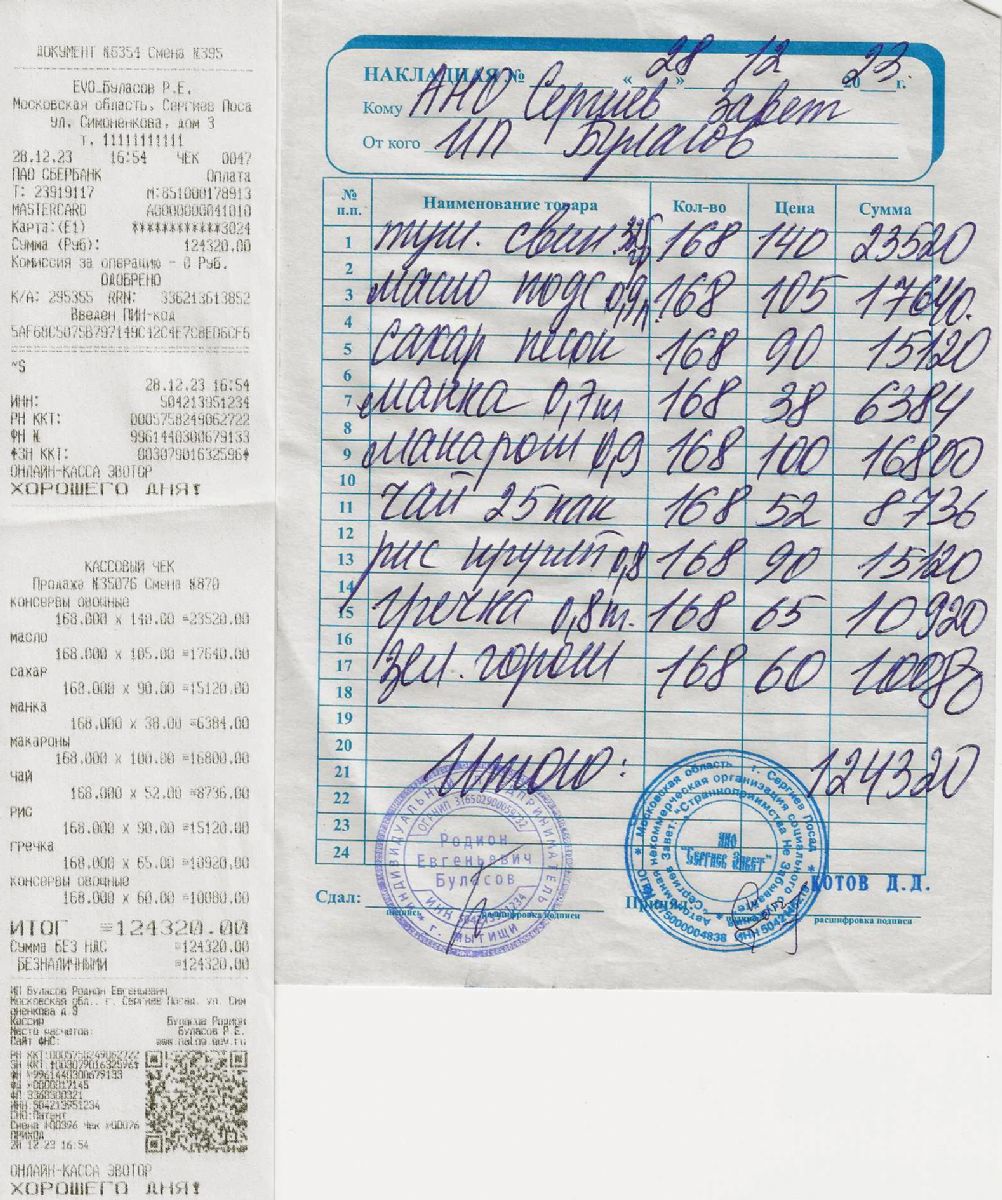 ДОКУМЕНТ №6354 Смена №395
EVO_Буласов Р.Е.
Московская область, Сергиев Поса
ул. Симоненкова, дом 3
т. 11111111111
28.12.23 16:54 ЧЕК 0047
ПАО СБЕРБАНК Оплата
Т: 23919117 М:851000178913
MASTERCARD A0000000041010
Карта:(Е1) ************3024
Сумма (Руб): 124320.00
Комиссия за операцию - 0 Руб.
ОДОБРЕНО
К/А: 295355 RRN: 336213613852
Введен ПИН-код
~S
28.12.23 16:54
ИНН: 504213951234
РН ККТ: 0005758249062722
ФН № 9961440300679133
ЗН ККТ: 00307901632596
ОНЛАЙН-КАССА ЭВОТОР
ХОРОШЕГО ДНЯ!
КАССОВЫЙ ЧЕК
Продажа №35076 Смена №870
консервы овощные
168.000 х 140.00 =23520.00
масло
168.000 х 105.00 =17640.00
сахар
168.000 х 90.00 =15120.00
манка
168.000 х 38.00 =6384.00
макароны
168.000 х 100.00 =16800.00
чай
168.000 х 52.00 =8736.00
рис
168.000 х 90.00 =15120.00
гречка
168.000 х 65.00 =10920.00
консервы овощные
168.000 х 60.00 =10080.00
ИТОГ =124320.00
Сумма БЕЗ НДС =124320.00
БЕЗНАЛИЧНЫМИ =124320.00
ИП Буласов Родион Евгеньевич
Московская обл., г. Сергиев Посад, ул. Сим
оненкова д.3
Кассир Буласов Родион
Место расчетов: Буласов Р.Е.
Сайт ФНС: www.nalog.gov.ru
РН ККТ:0005758249062722
ЗН ККТ:00307901632596
ФН №9961440300679133
ФД №0000017145
ФП 3368300321
ИНН 504213951234
СНО:Патент
ПРИХОД
28.12.23 16:54
ОНЛАЙН-КАССА ЭВОТОР
ХОРОШЕГО ДНЯ!
НАКЛАДНАЯ № « 28 » 12 2023 г.
Кому АНО Сергиев Завет
От кого ИП Буласов
№ п.п. Наименование товара Кол-во Цена Сумма
1 туш. свин. 325 168 140 23520
2
3 масло подс 0,9л. 168 105 17640.
4
5 сахар песок 168 90 15120
6
7 манка 0,7т 168 38 6384
8
9 макарош 0,9 168 100 16800
10
11 чай 25 пак 168 52 8736
12
13 рис кругл 0,8 168 90 15120
14
15 гречка 0,8т. 168 65 10920
16
17 зел. горош 168 60 10080
18
19
20
21 Итого: 124320
22
23
24
ИНДИВИДУАЛЬНЫЙ ПРЕДПРИНИМАТЕЛЬ
Родион
Евгеньевич
Буласов
г. МЫТИЩИ
Московская область г. Сергиев Посад
Автономная некоммерческая организация социального
"Сергиев Завет: "Странноприимства Не Забывайте"
АНО
"Сергиев Завет"
КОТОВ Д.Д.
Сдал: Принял
подпись расшифровка подписи подпись расшифровка подписи